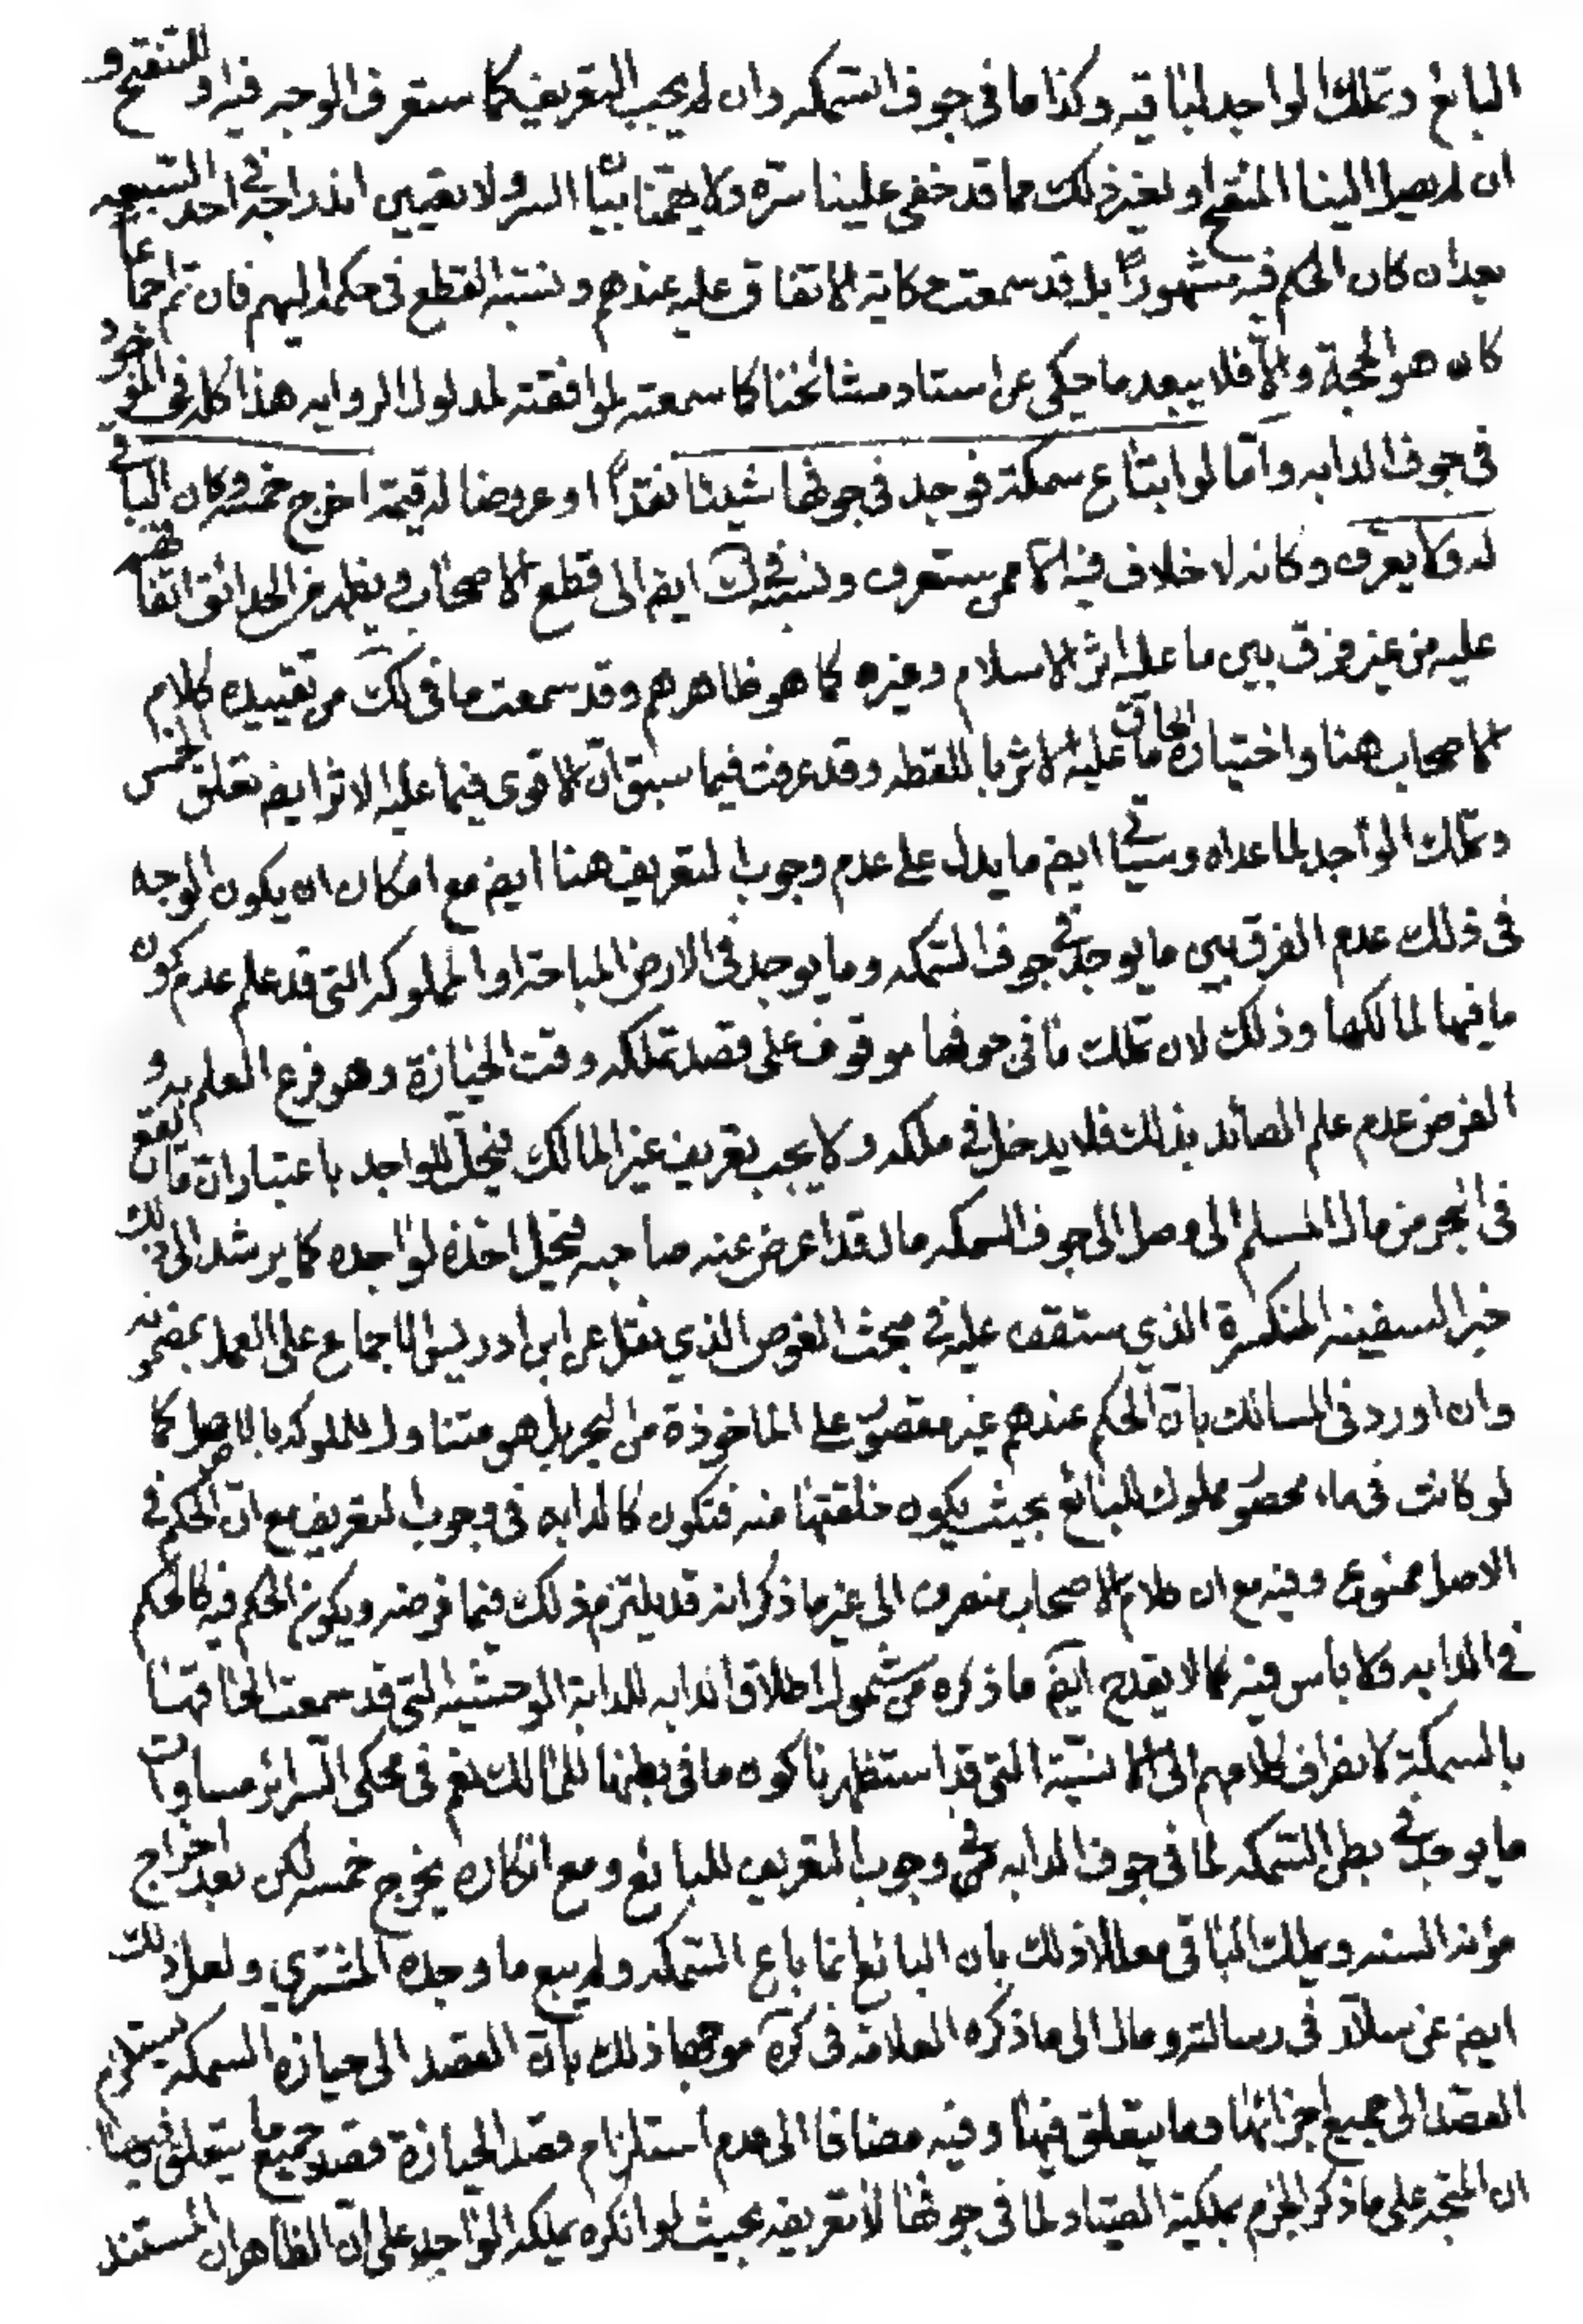 البائع وتملك الواجد لباقيه وكذا ما في جوف السمكه وان لم يجب التعريف كما ستعرف الوجه فيه او للتنقيح و
ان لم يصل الينا المنقح او لغير ذلك مما قد خفى علينا سره ولا يهمنا بيان السر ولا تعيين اندراجه في احد السبعه
بعد ان كان الحكم فيه مشهوراً بل قد سمعت حكاية الاتفاق عليه عندهم ونسبه القطع في حكمه اليهم فان تم اجماعا
كان هو الحجة والا فلا يبعد ما حكى عن استاد مشائخنا كما سمعته لموافقته لمدلول الروايه هذا كله في الموجود
في جوف الدابه واما لو ابتاع سمكة فوجد في جوفها شيئا نقداً او عروضا له قيمة اخرج خمسه وكان الباقي
له ولا يعرف وكانه لا خلاف فيه الا ممن ستعرف ونسبه في ك ايض الى قطع الاصحاب ويظهر من الحدائق اتفاقهم
عليه من غير فرق بين ما عليه اثر الاسلام وغيره كما هو ظاهرهم وقد سمعت ما في لك من تقييده كلام
الاصحاب هنا واختياره الحاق ما عليه الاثر باللقطه وقد عرفت فيما سبق ان الاقوى فيما عليه الاثر ايض تعلق الخمس
وتملك الواجد لما عداه وسيأتي ايض ما يدل على عدم وجوب التعريف هنا ايض مع امكان ان يكون الوجه
في ذلك عدم الفرق بين ما يوجد في جوف السمكه وما يوجد في الارض المباحة او المملوكه التي قد علم عدم كون
ما فيها لمالكها وذلك لان تملك ما في جوفها موقوف على قصد تملكه وقت الحيازة وهو فرع العلم به و
الفرض عدم علم الصائد بذلك فلا يدخل في ملكه ولا يجب تعريف غير المالك فيحل للواجد باعتبار ان ما يقع
في البحر من مال المسلم الى وصل الى جوف السمكه مال قد اعرض عنه صاحبه فيحل اخذه لواجده كما يرشد الى ذلك
خبر السفينه المنكسرة الذي ستقف عليه في مبحث الغوص الذي نقل عن ابن ادريس الاجماع على العمل بمضمونه
وان اورد في المسالك بان الحكم عندهم غير مقصور على الماخوذة من البحر بل هو متناول للملوكه بالاصل كما
لو كانت في ماء محصور مملوك للبائع بحيث يكون خلقتها منه فتكون كالدابه في وجوب التعريف مع ان الحكم في
الاصل ممنوع وفيه مع ان كلام الاصحاب منصرف الى غير ما ذكر انه قد يلتزم ذلك فيما فرضه ويكون الحكم فيه كالحكم
في الدابه ولا باس فيه كما لا يقدح ايض ما ذكره من شمول اطلاق الدابه للدابة الوحشيه التي قد سمعت الحاقها
بالسمكة لانصراف كلامهم الى الانسية التي قد استظهرنا كون ما في بطنها للمالك نعم في محكى السرائر مساوات
ما يوجد في بطن السمكه لما في جوف الدابه في وجوب التعريف للبائع ومع انكاره يخرج خمسه لكن بعد اخراج
مؤنه السنه ويملك الباقي معللا ذلك بان البائع انما باع السمكه ولم يبع ما وجده المشتري ولعل ذلك
ايض عن سلار في رسالته ومال الى ما ذكره العلامه في كره موجها ذلك بان القصد الى حيازه السمكه يستلزم
القصد الى جميع اجزائها وما يتعلق فيها وفيه مضافا الى عدم استلزام قصد الحيازة قصد جميع ما يتعلق فيها
ان المتجه على ما ذكر الجزم بملكية الصياد لما في جوفها لا تعريفه بحيث لو انكره يملكه الواجد على ان الظاهر ان المستند